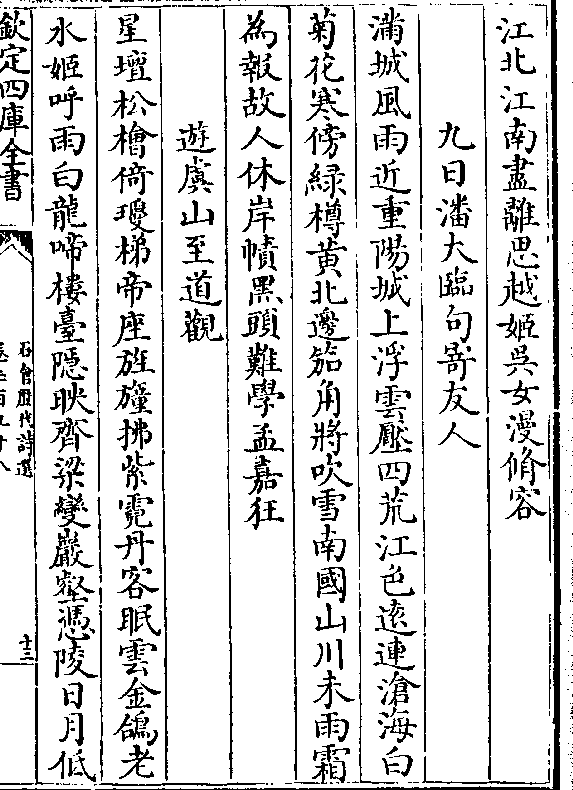 江北江南盡離思越姬吳女漫脩容
九日潘大臨句寄友人
滿城風雨近重陽城上浮雲壓四荒江色遠連滄海白
菊花寒傍綠樽黃北邊笳角將吹雪南國山川未雨霜
為報故人休岸幘黑頭難學孟嘉狂
遊虞山至道觀
星壇松檜倚瓊梯帝座旌旜拂紫霓丹客眠雲金鴿老
水姬呼雨白龍啼樓臺隱映齊梁變巖壑憑陵日月低
欽定四庫全書
石倉歷代詩選
十二